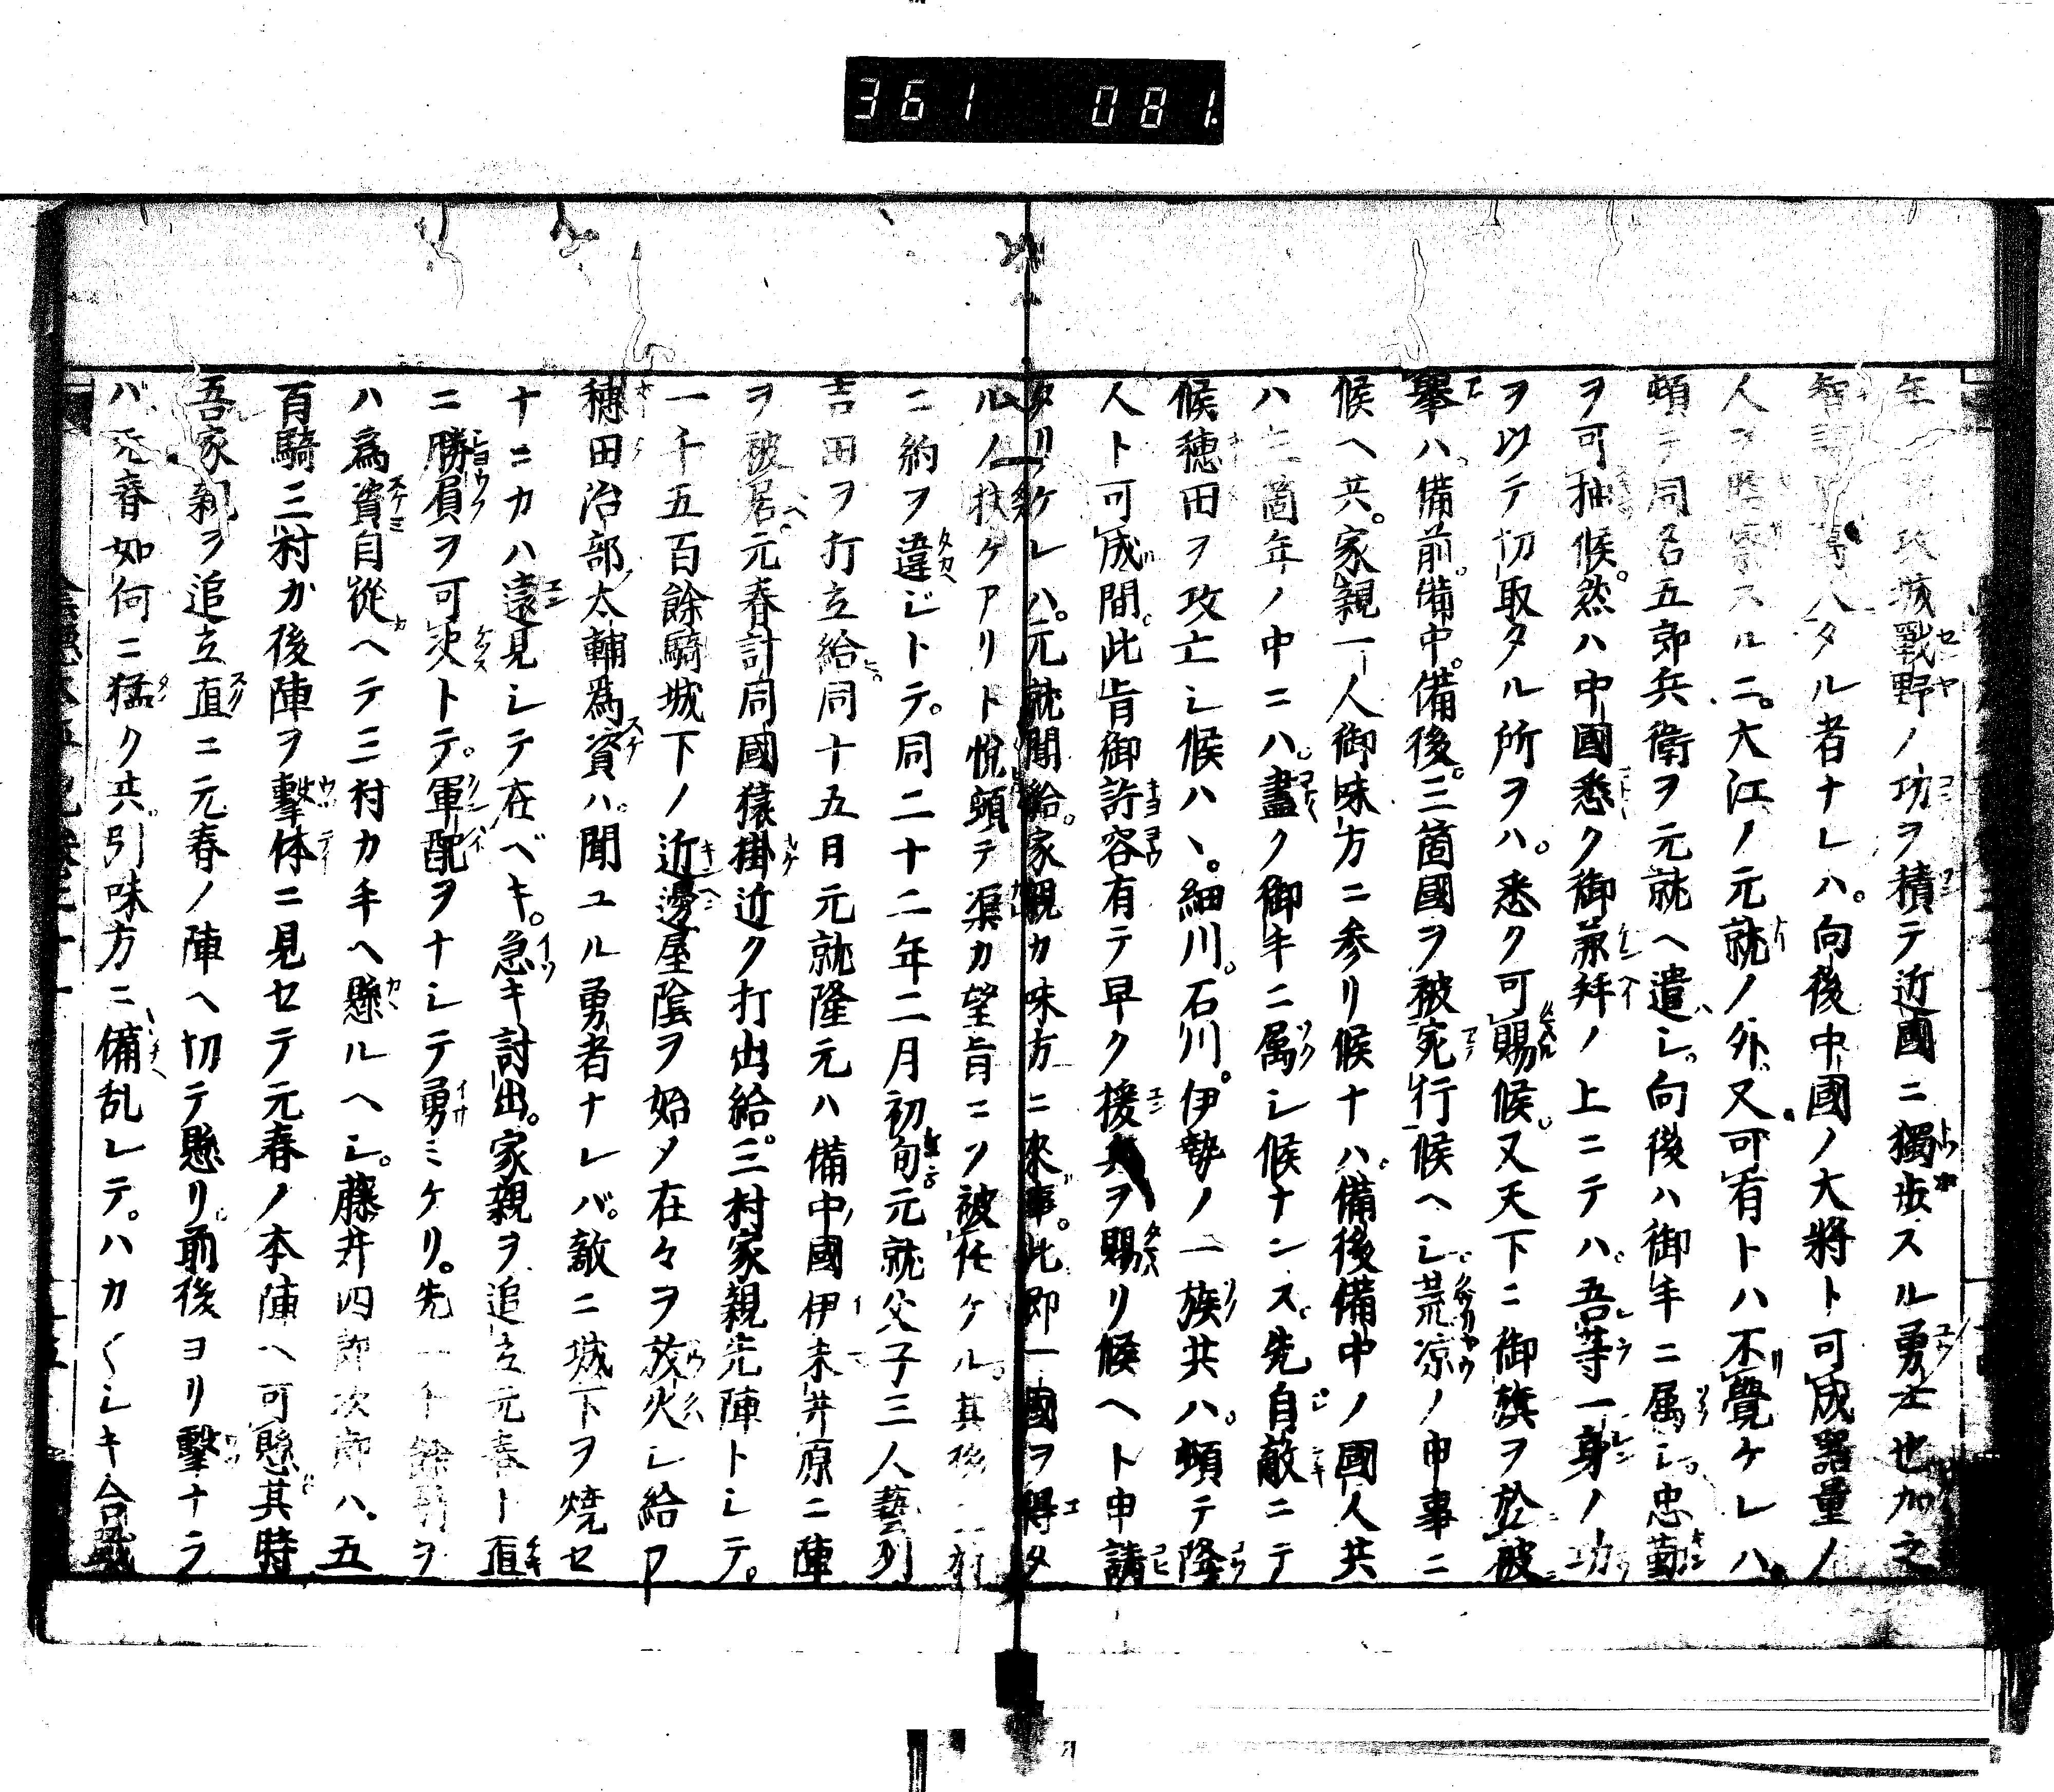 361 081
年 攻城戰野ノ功ヲ積テ近國ニ獨歩スル勇士也加之
智 タル者ナレハ。向後中國ノ大將ト可成器量ノ
人ヲ 察スルニ。大江ノ元就ノ外。又可有トハ不覺ケレハ。
頓テ同名五郎兵衛ヲ元就ヘ遣シ。向後ハ御手ニ属シ。忠勤
ヲ可抽候。然ハ中國悉ク御 ノ上ニテハ。吾等一身ノ功
ヲ以テ切取タル所ヲハ。悉ク可賜候。又天下ニ御旗ヲ於被
擧ハ。備前。備中。備後。三箇國ヲ被宛行候ヘシ。荒凉ノ申事ニ
候ヘ共。家親一人御味方ニ参リ候ナハ。備後備中ノ國人共
ハ三箇年ノ中ニハ。盡ク御手ニ属シ候ナンス。先自敵ニテ
候穂田ヲ攻亡シ候ハヽ。細川。石川。伊勢ノ一族共ハ。頓テ降
人ト可成間。此旨御許容有テ早ク援兵ヲ賜リ候ヘト申請
タリケレハ。元就聞給。家親カ味方ニ來事。此即一國ヲ得タ
ルノ扶ケアリト悦。頓テ渠カ望旨ニソ被任ケル。其後三村
ニ約ヲ違ジトテ。同二十二年二月初旬元就父子三人藝列
吉田ヲ打立給。同十五日元就隆元ハ備中ノ國伊未井原ニ陣
ヲ被居。元春計同國猿掛近ク打出給。三村家親先陣トシテ。
一千五百餘騎城下ノ近邊屋陰ヲ始メ在々ヲ放火シ給フ
穂田治部太輔爲資ハ。聞ユル勇者ナレバ。敵ニ城下ヲ焼セ
ナニカハ遠見シテ在ベキ。急キ討出。家親ヲ追立元春ト直
ニ勝負ヲ可决トテ。軍配ヲナシテ勇ミケリ。先一千餘騎ヲ
ハ爲資自從ヘテ三村カ手ヘ懸ルヘシ。藤井四郎次郎ハ。五
百騎三村カ後陣ヲ擊体ニ見セテ元春ノ本陣ヘ可懸。其時
吾家親ヲ追立直ニ元春ノ陣ヘ切テ懸リ。前後ヨリ擊ナラ
バ。元春如何ニ猛ク共。引味方ニ備乱レテ。ハカ〱シキ合戰